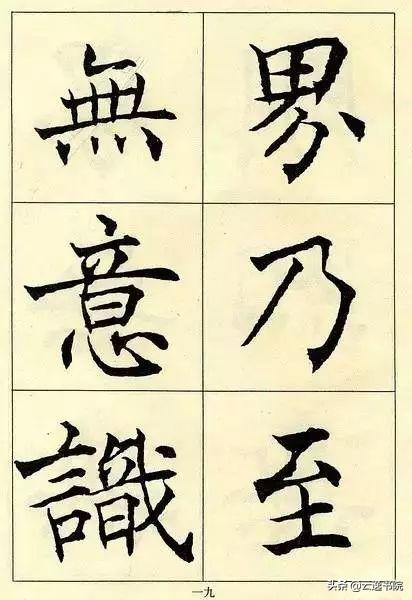 界乃至
無意識
一九
头条@云逐书院